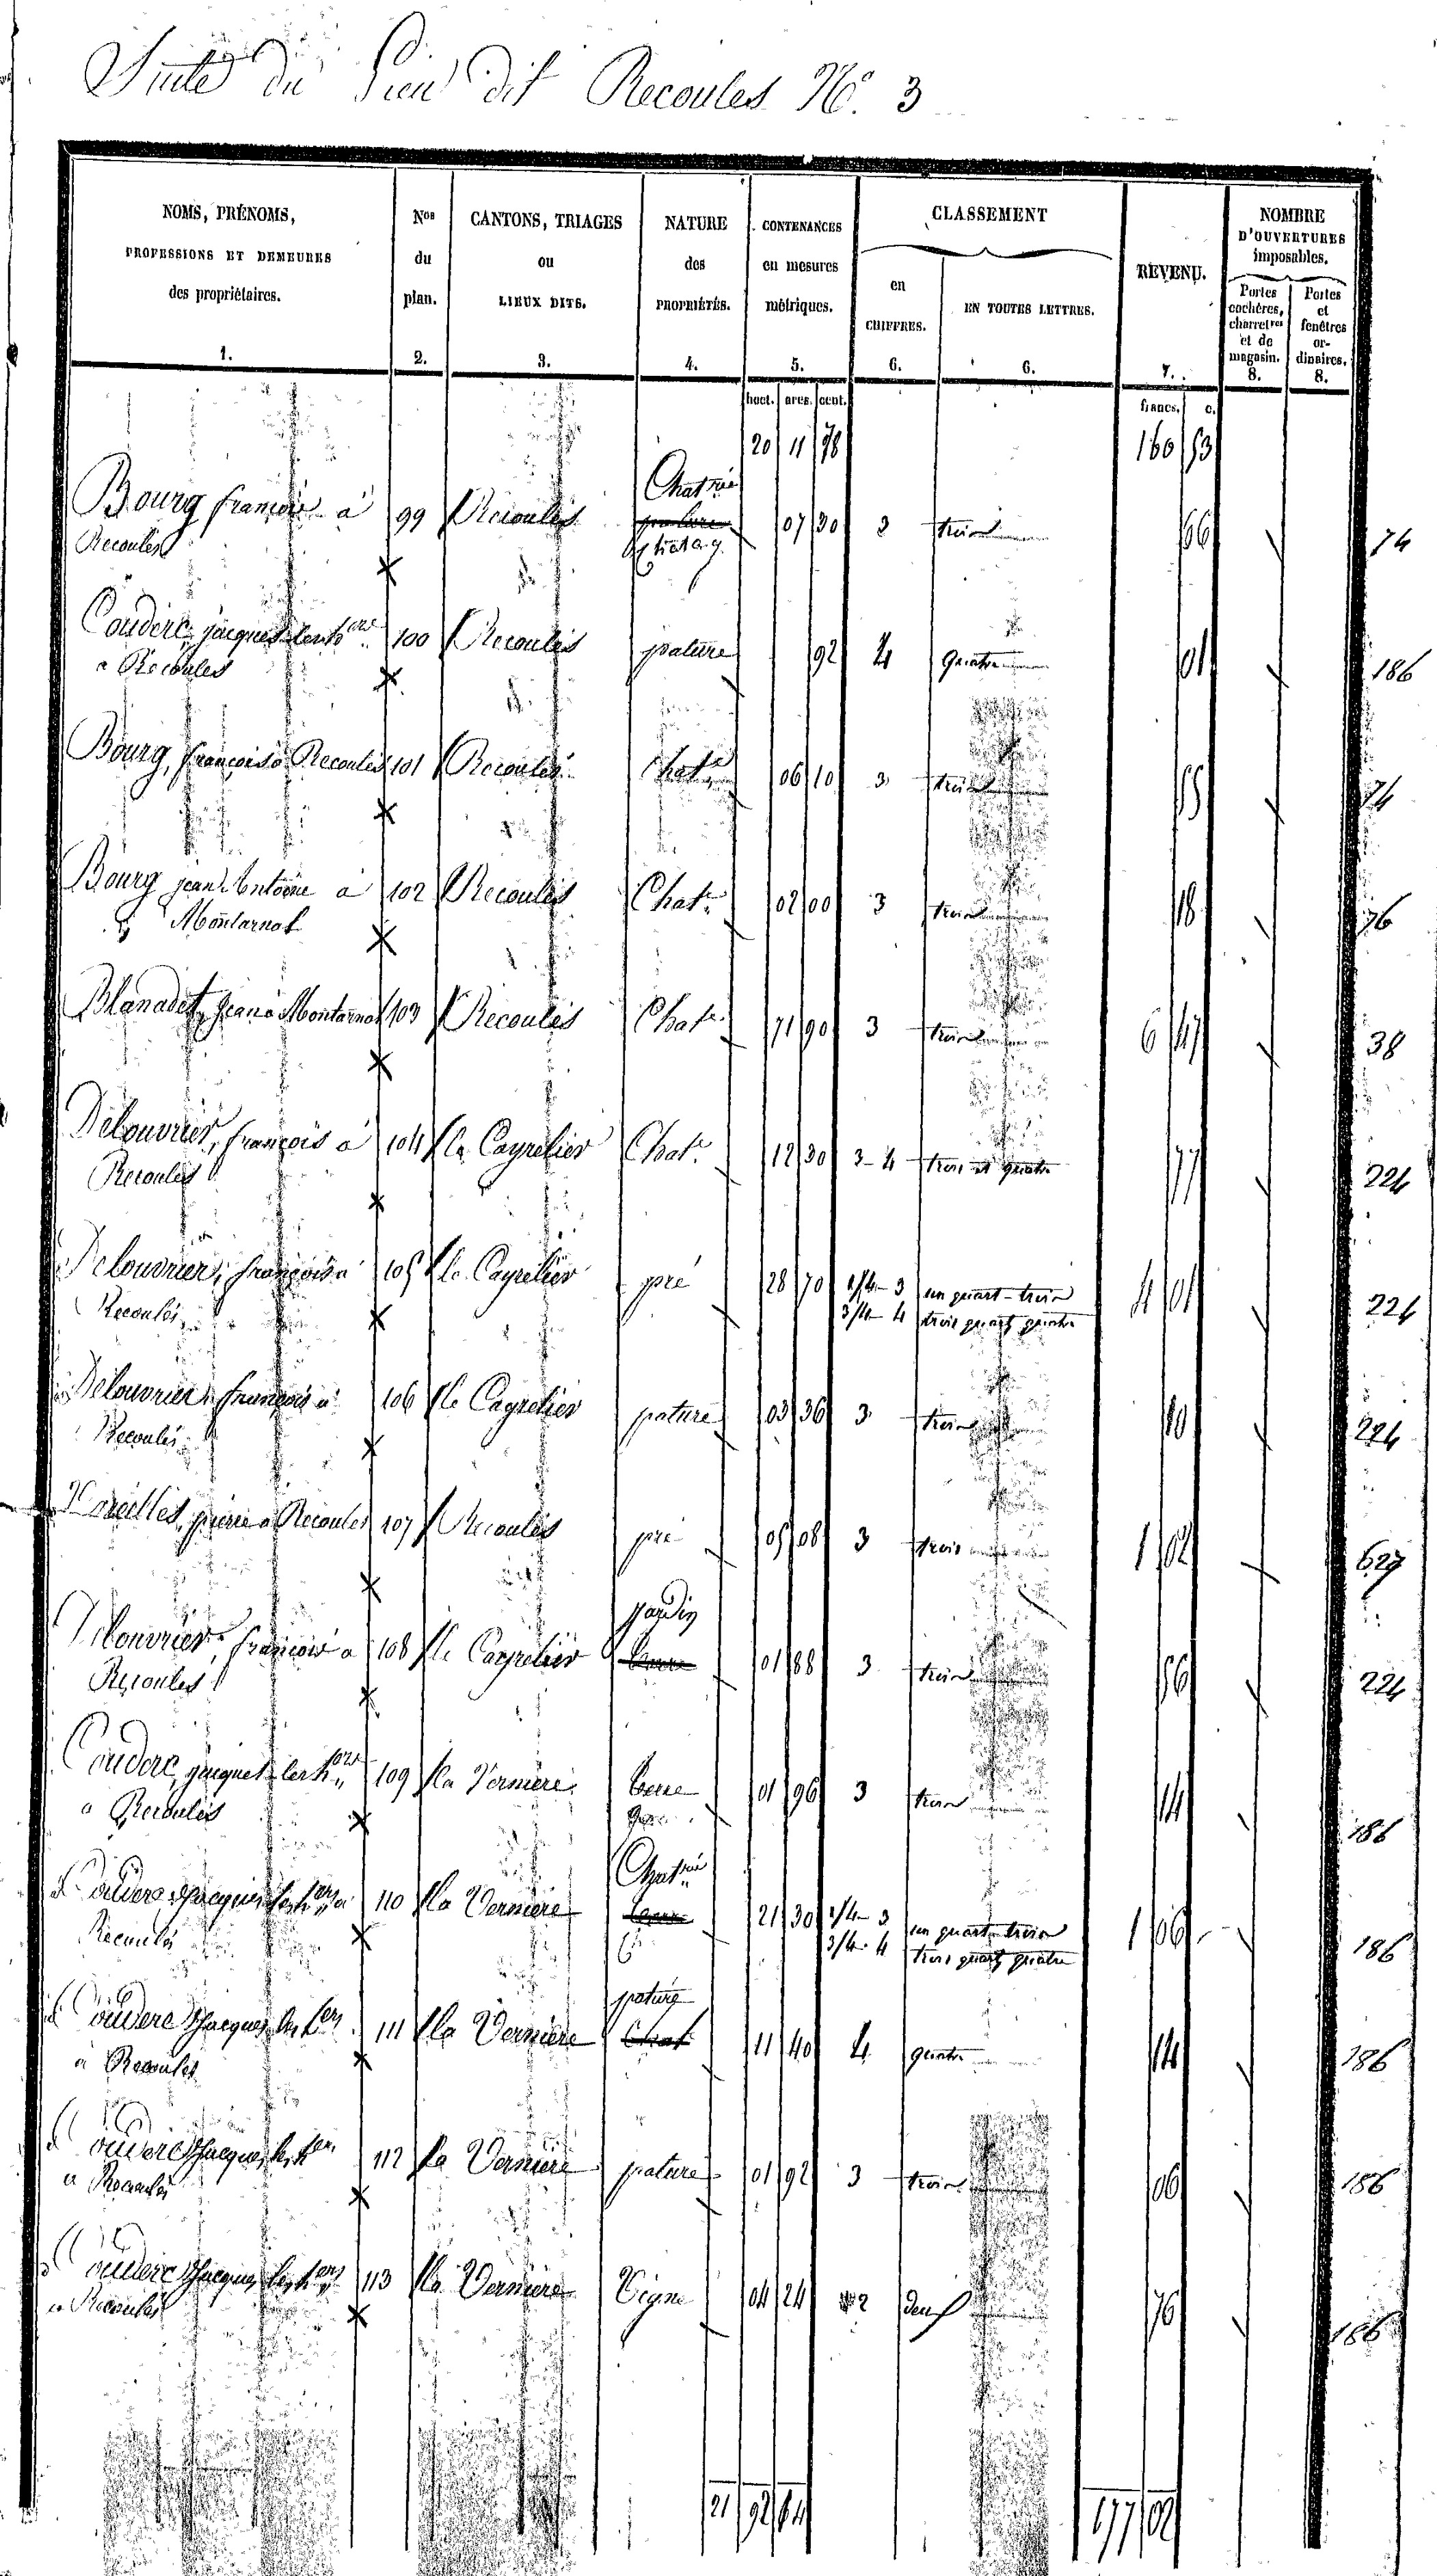 Suite du Lieu dit Recoules N° 3
NOMS, PRÉNOMS, PROFESSIONS ET DEMEURES des propriétaires. 1.
Nos du plan. 2.
CANTONS, TRIAGES ou LIEUX DITS. 3.
NATURE des PROPRIÉTÉS. 4.
CONTENANCES en mesures métriques. 5.
CLASSEMENT
en CHIFFRES. 6.
EN TOUTES LETTRES. 6.
REVENU. 7.
NOMBRE D'OUVERTURES imposables.
Portes cochères, charretres et de magasin. 8.
Portes et fenêtres ordinaires. 8.
hect. ares. cent. francs. c.
20 11 78 160 53
Chat.
Bourg françois à 99 Recoules pature 07 30 3 trois 66 74
Recoules Chatag.
Couderc, jacques 100 Recoules pature 92 4 quatre 01 186
à Recoules
Bourg, françois à Recoules 101 Recoules Chat. 06 10 3 trois 55 74
Bourg jean Antoine à 102 Recoules Chat. 02 00 3 trois 18 76
Montarnal
Blanadet, jean à Montarnal 103 Recoules Chat. 71 90 3 trois 6 47 38
Delouvrier, françois à 104 le Cayrelier Chat. 12 30 3-4 trois et quatre 77 224
Recoules
Delouvrier, françois à 105 le Cayrelier pré 28 70 1/4-3 un quart-trois 4 01 224
Recoules 3/4-4 trois quart quatre
Delouvrier, françois à 106 le Cayrelier pature 03 36 3 trois 10 224
Recoules
pierre à Recoules 107 Recoules pré 05 08 3 trois 1 02 627
jardin
Delouvrier, françois à 108 le Cayrelier 01 88 3 trois 56 224
Recoules
Couderc, jacques 109 la Verniere terre 01 96 3 trois 14 186
à Recoules
Chat.
Couderc, Jacques 110 la Verniere 21 30 1/4-3 un quart-trois 1 06 186
Recoules 3/4-4 trois quart quatre
pature
Couderc Jacques 111 la Verniere Chat 11 40 4 quatre 14 186
à Recoules
Couderc Jacques 112 la Verniere pature 01 92 3 trois 06 186
à Recoules
Couderc Jacques 113 la Verniere Vigne 04 24 2 deux 76 186
à Recoules
21 92 64 177 02